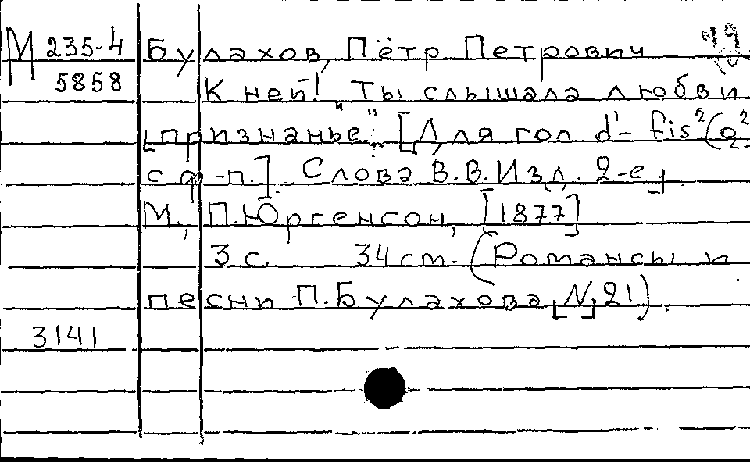 М 235-4 Булахов, Пётр Петрович 49
5858 К ней! "Ты слышала любви
признанье". [Для гол d'- fis²(g²)
с ф-п.]. Слова В.В. Изд. 2-е,
М., П. Юргенсон, [1877]
3 с. 34 см. (Романсы и
песни П. Булахова, №21).
3141